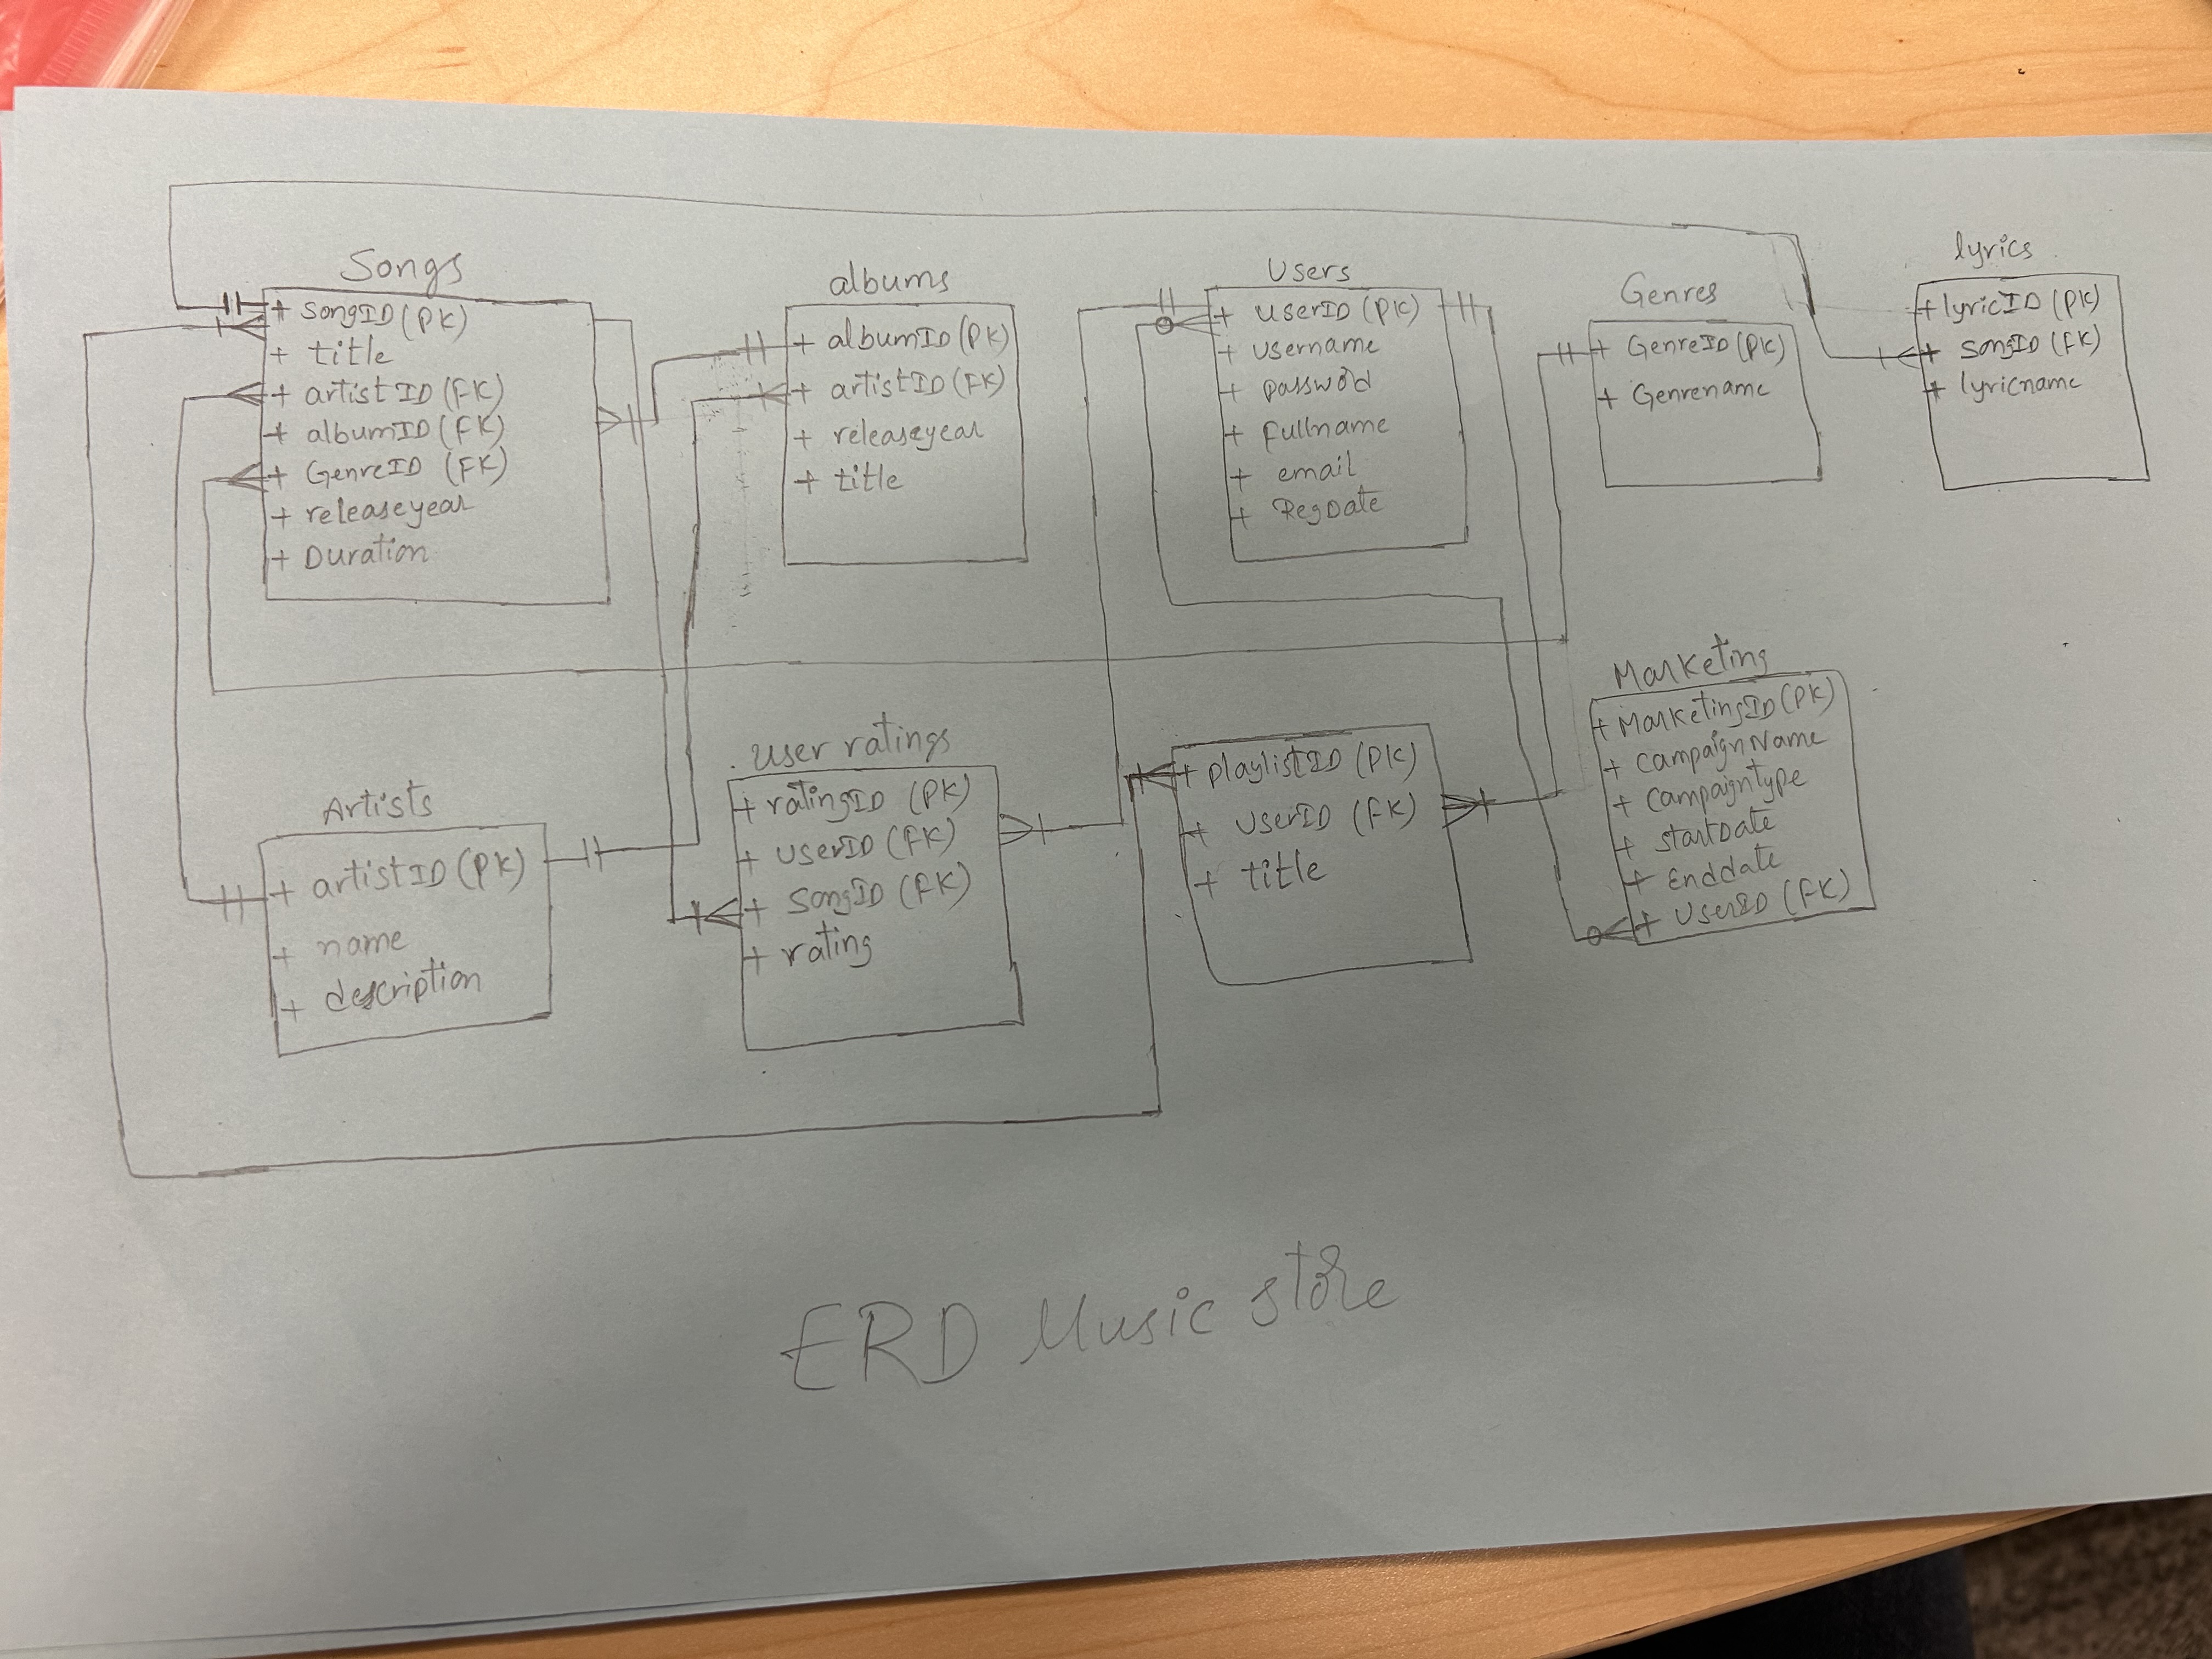 Songs
+ SongID (PK)
+ title
+ artistID (FK)
+ albumID (FK)
+ GenreID (FK)
+ releaseyear
+ Duration
albums
+ albumID (PK)
+ artistID (FK)
+ releaseyear
+ title
Users
+ UserID (PK)
+ Username
+ password
+ Fullname
+ email
+ RegDate
Genres
+ GenreID (PK)
+ Genrename
lyrics
+ lyricID (PK)
+ SongID (FK)
+ lyricname
Artists
+ artistID (PK)
+ name
+ description
User ratings
+ ratingID (PK)
+ UserID (FK)
+ SongID (FK)
+ rating
+ playlistID (PK)
+ UserID (FK)
+ title
Marketing
+ MarketingID (PK)
+ CampaignName
+ Campaigntype
+ StartDate
+ Enddate
+ UserID (FK)
ERD Music store